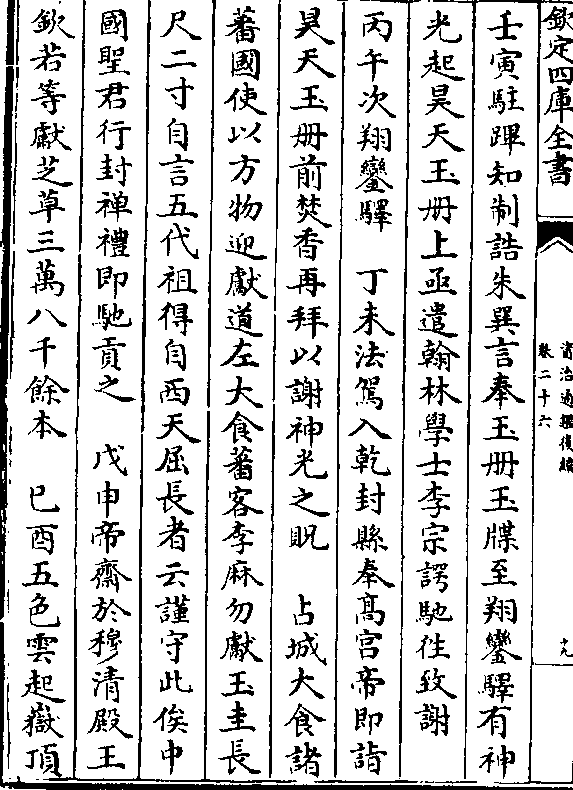 欽定四庫全書
資治通鑑後編
卷二十六
十九
壬寅駐蹕知制誥朱巽言奉玉册玉牒至翔鸞驛有神
光起昊天玉册上亟遣翰林學士李宗諤馳往致謝
丙午次翔鸞驛　丁未法駕入乾封縣奉髙宫帝即詣
昊天玉册前焚香再拜以謝神光之貺　占城大食諸
蕃國使以方物迎獻道左大食蕃客李麻勿獻玉圭長
尺二寸自言五代祖得自西天屈長者云謹守此俟中
國聖君行封禅禮即馳貢之　戊申帝齋於穆清殿王
欽若等獻芝草三萬八千餘本　已酉五色雲起嶽頂